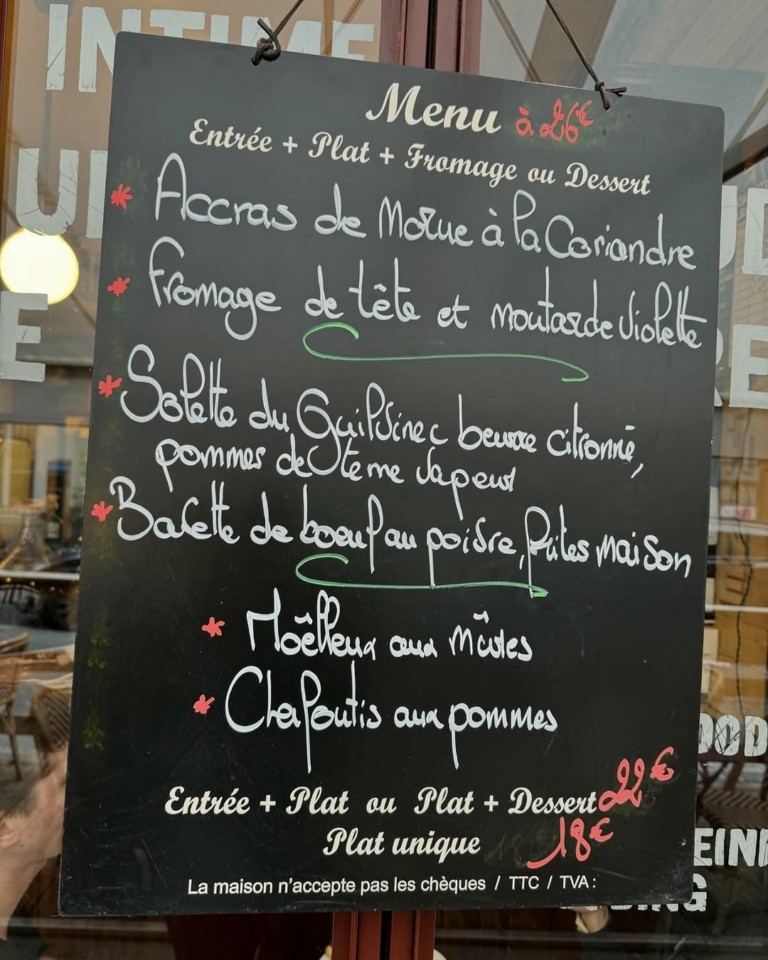 INTIME
Menu à 26€
Entrée + Plat + Fromage ou Dessert
* Accras de Morue à la Coriandre
* Fromage de tête et moutarde Violette
* Solette du Guilvinec beurre citronné,
pommes de terre vapeur
* Bavette de boeuf au poivre, frites maison
* Moêlleux aux mûres
* Clafoutis aux pommes
Entrée + Plat ou Plat + Dessert 22€
Plat unique 18€
La maison n'accepte pas les chèques / TTC / TVA :